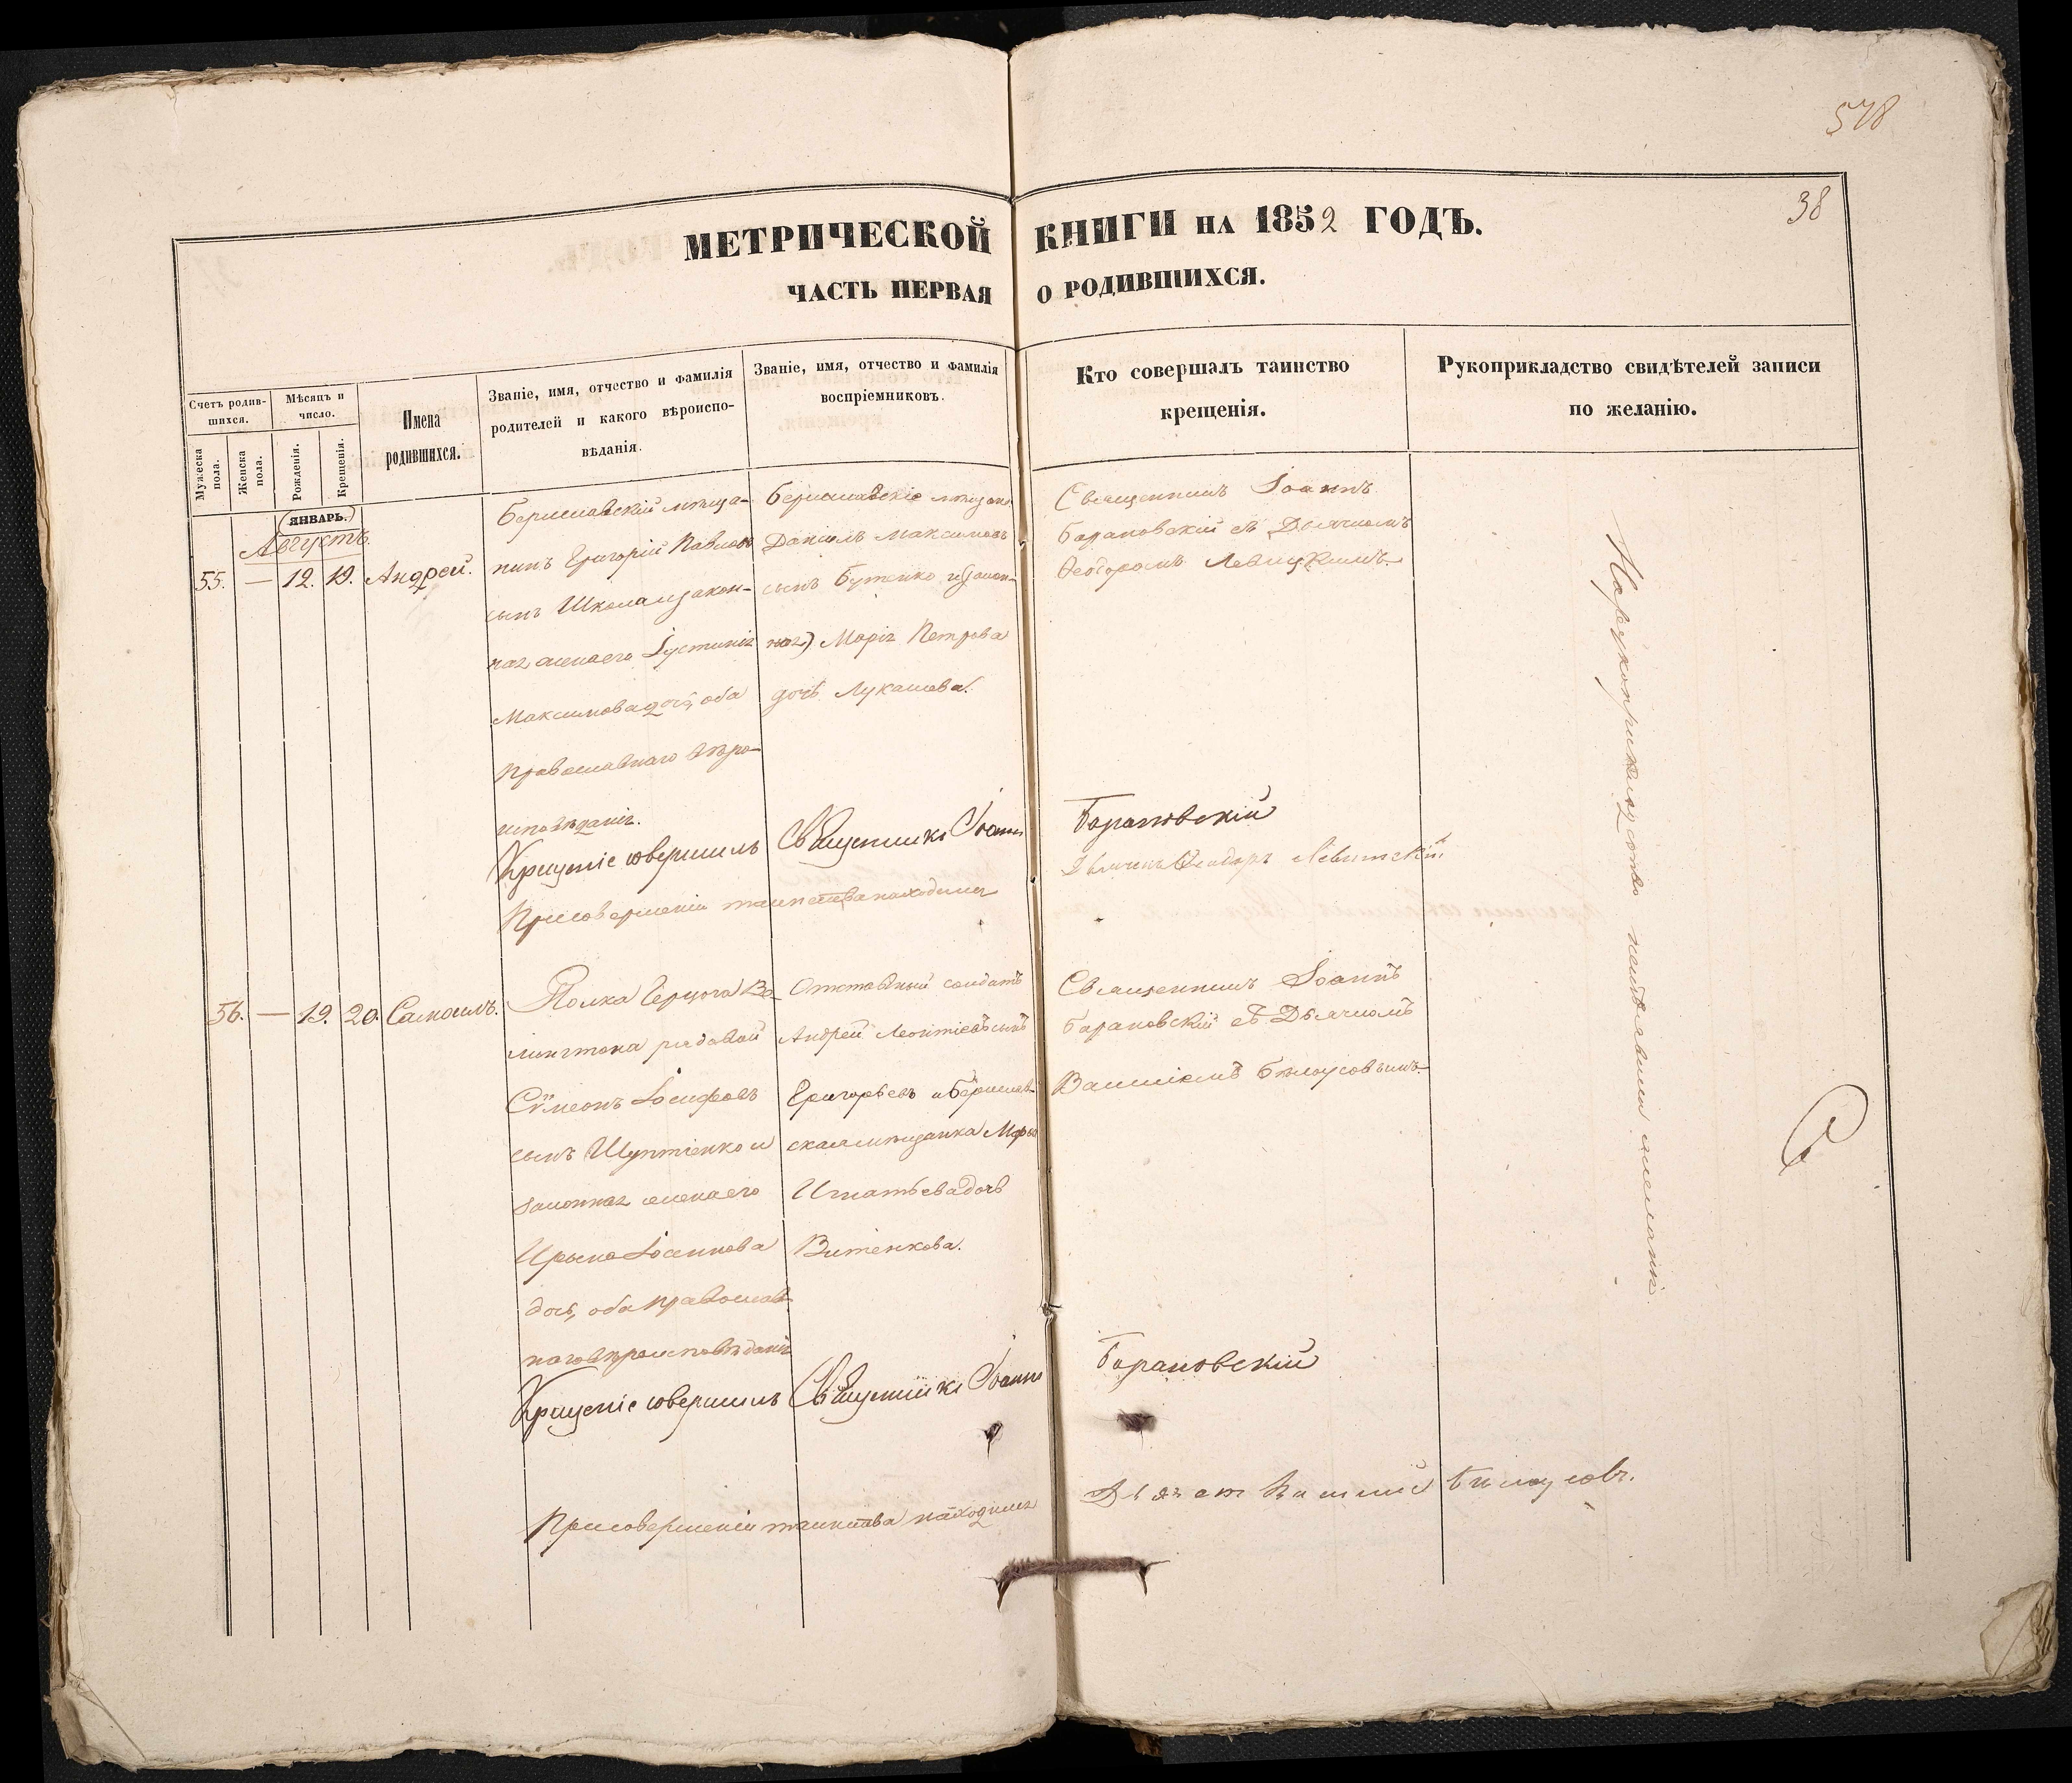 578
38
МЕТРИЧЕСКОЙ КНИГИ НА 1852 ГОДЪ.
ЧАСТЬ ПЕРВАЯ О РОДИВШИХСЯ.
Счетъ родив-
шихся.
Мужеска пола.
Женска пола.
Мѣсяцъ и
число.
Рожденія.
Крещенія.
Имена
родившихся.
Званіе, имя, отчество и фамилія
родителей и какого вѣроиспо-
вѣданія.
Званіе, имя, отчество и фамилія
воспріемниковъ.
Кто совершалъ таинство
крещенія.
Рукоприкладство свидѣтелей записи
по желанію.
(ЯНВАРЬ.)
Августъ.
55. — 12. 19. Андрей.
Бериславскій мѣща-
нинъ Григорій Павловъ
сынъ закон
ная жена его Іустинія
Максимова дочь, оба
Православнаго вѣро-
исповѣданія.
Бериславскіе мѣщан.
Даніилъ Максимовъ
сынъ Бутенко и (закон-
ная) Марія Петрова
дочь Лукашева.
Священникъ Іоаннъ
Барановскій съ Дьячкомъ
Ѳеодоромъ Левицкимъ.
Крещеніе совершилъ Священникъ Іоаннъ Барановскій
При совершеніи таинства находился Дьячекъ Ѳеодоръ Левитскій
56. — 19. 20. Самоилъ.
Полка Герцога Ве-
лингтона рядовой
Сѵмеонъ Іосифовъ
сынъ Шуптіенко и
законная жена его
Ирына
дочь, оба православ-
наго вѣроисповѣданія
Отставный солдатъ
Андрей Леонтіевъ сынъ
Григорьевъ и Берислав-
ская мѣщанка Марѳа
Игнатьева дочь
Витенкова.
Священникъ Іоаннъ
Барановскій съ Дьячкомъ
Василіемъ Бѣлоусовымъ.
Крещеніе совершилъ Священникъ Іоаннъ Барановскій
При совершеніи таинства находился Дьячекъ Василій Бѣлоусовъ.
На рукоприкладство неизъявили желанія.